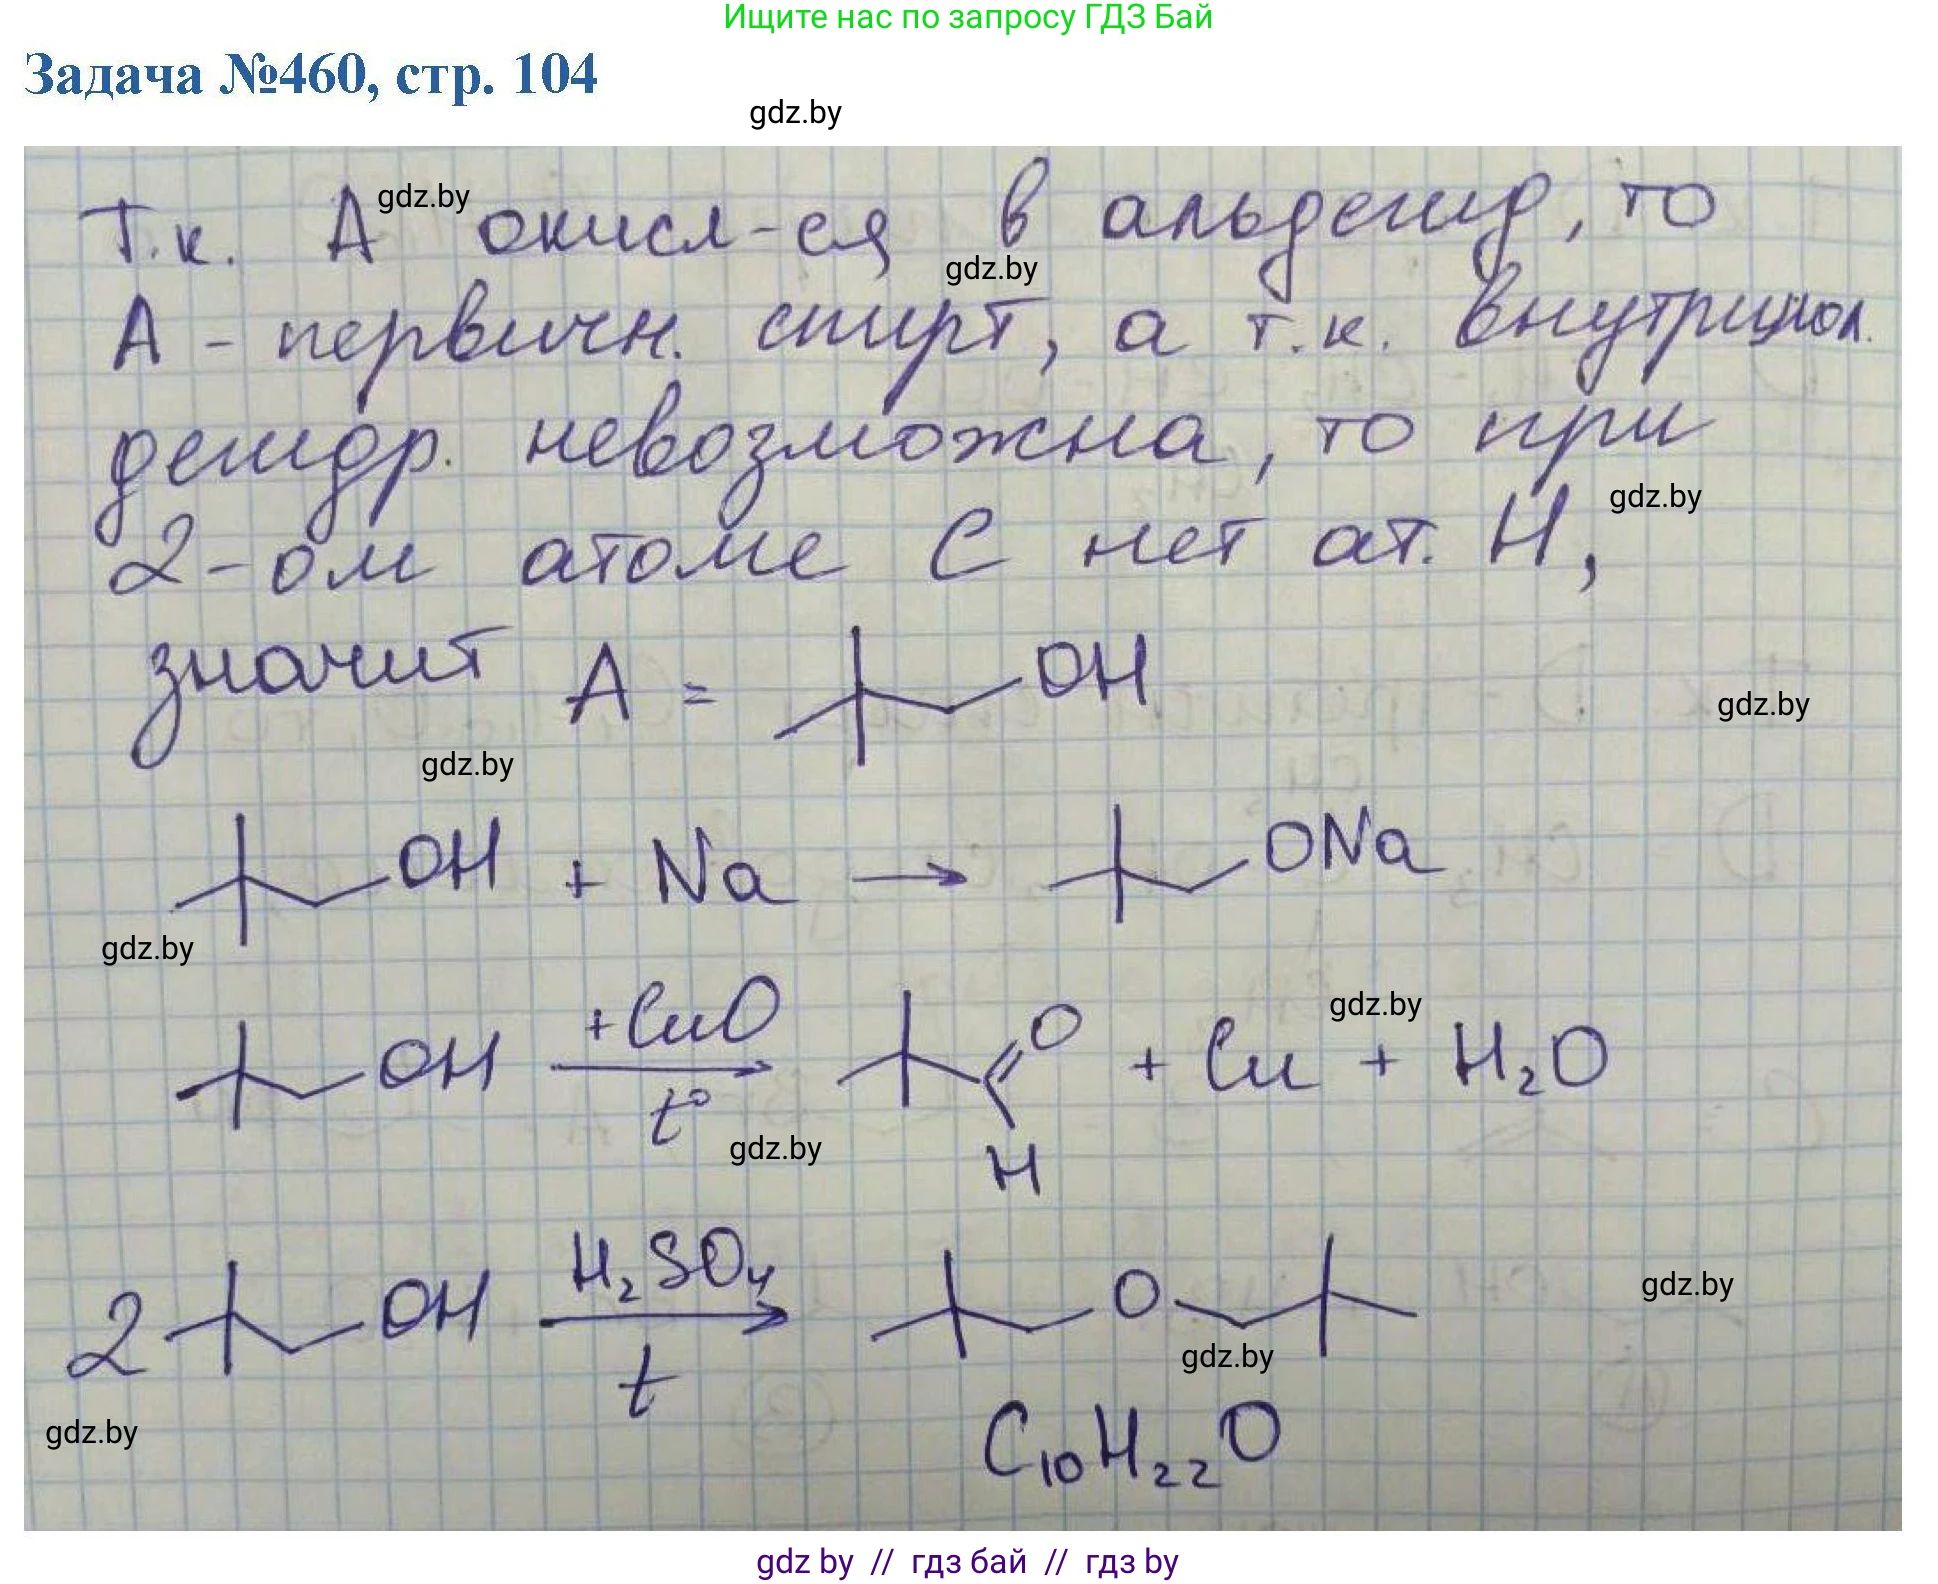 Ищите нас по запросу ГДЗ Бай
Задача №460, стр. 104
gdz.by
Т.к. А gdz.by окисл-ся в альдегид, то
gdz.by
А - первичн. спирт, а т.к. внутримол.
дегидр. невозможна, то при
gdz.by
2-ом атоме С нет ат. Н,
значит А = OH
gdz.by
gdz.by
OH + Na → ONa
gdz.by
+CuO
gdz.by
OH → O + Cu + H₂O
t°
gdz.by
H
H₂SO₄
2 OH → O
gdz.by
gdz.by
t
gdz.by
C₁₀H₂₂O
gdz by // гдз бай // гдз by